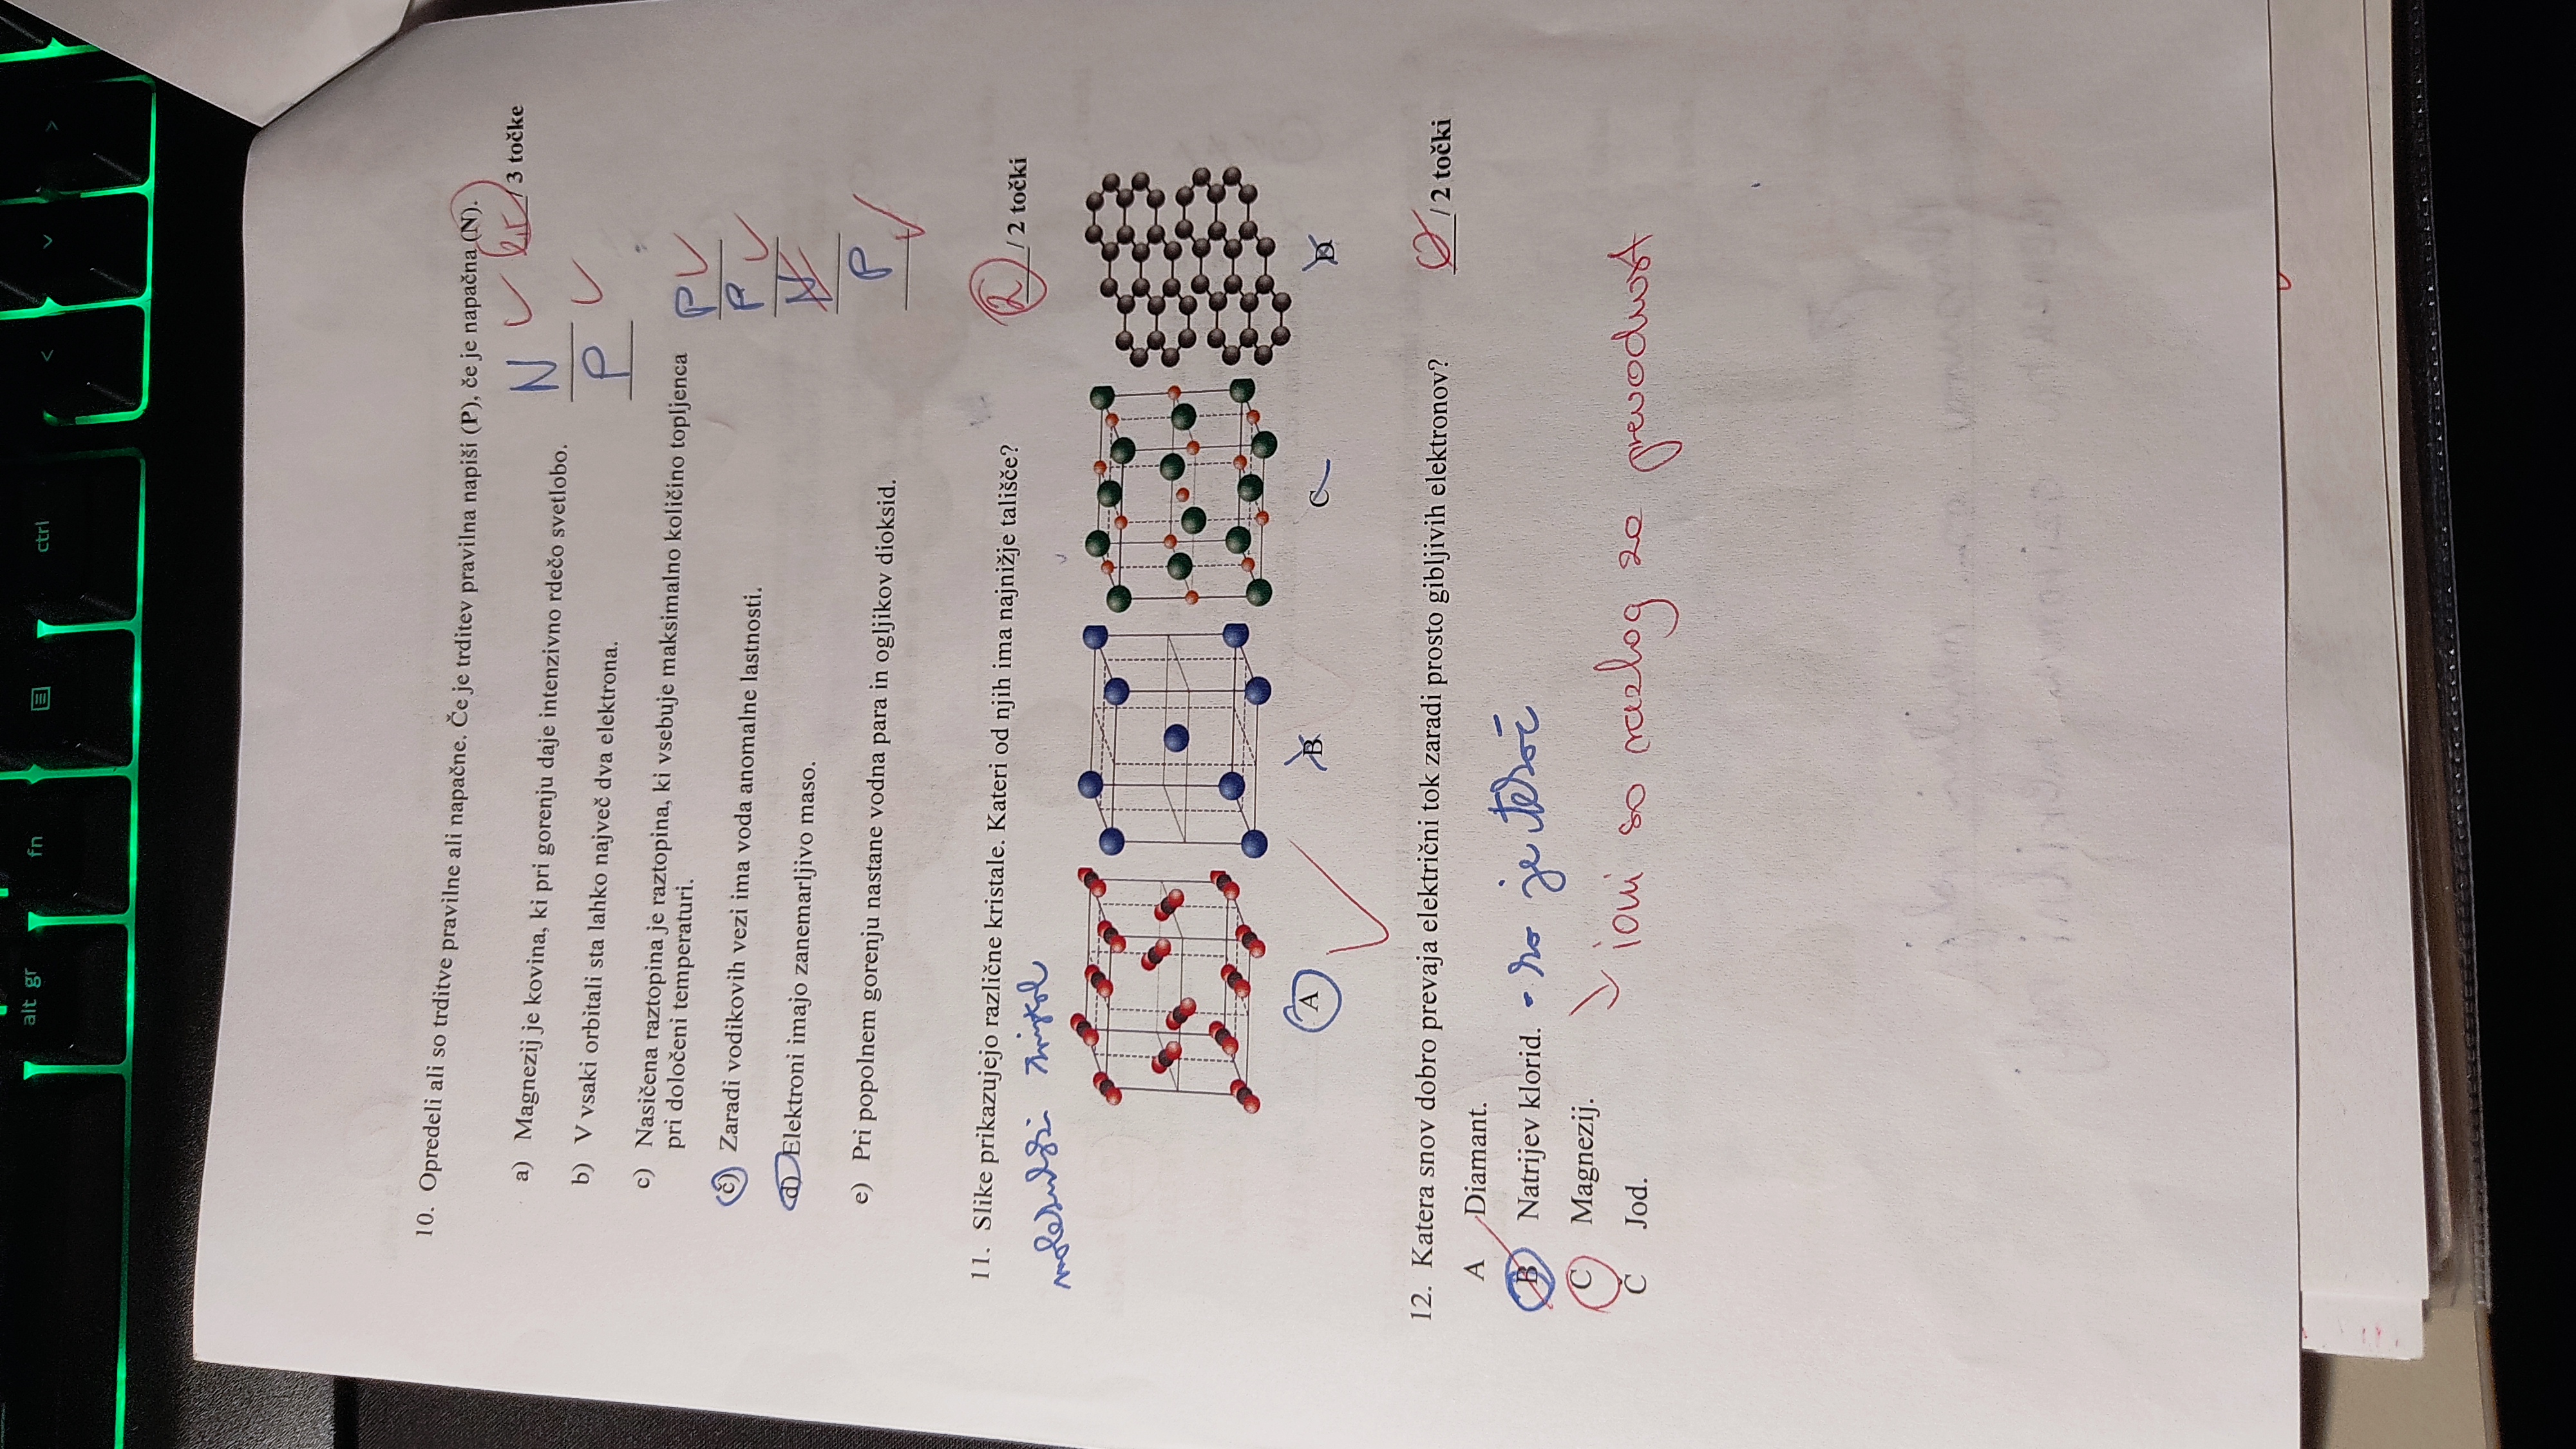 alt gr fn ctrl < >
10. Opredeli ali so trditve pravilne ali napačne. Če je trditev pravilna napiši (P), če je napačna (N).
2,5 / 3 točke
a) Magnezij je kovina, ki pri gorenju daje intenzivno rdečo svetlobo. N
b) V vsaki orbitali sta lahko največ dva elektrona. P
c) Nasičena raztopina je raztopina, ki vsebuje maksimalno količino topljenca
pri določeni temperaturi. P
č) Zaradi vodikovih vezi ima voda anomalne lastnosti. P
d) Elektroni imajo zanemarljivo maso. N
e) Pri popolnem gorenju nastane vodna para in ogljikov dioksid. P
11. Slike prikazujejo različne kristale. Kateri od njih ima najnižje tališče? 2 / 2 točki
molekulski kristal
A B C D
12. Katera snov dobro prevaja električni tok zaradi prosto gibljivih elektronov? 0 / 2 točki
A Diamant.
B Natrijev klorid. - ko je tekoč
C Magnezij.
ioni so razlog za prevodnost
Č Jod.